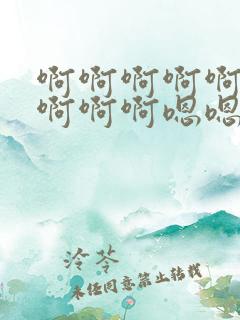 啊啊啊啊啊
啊啊啊嗯嗯
泠苓
未经同意禁止转载